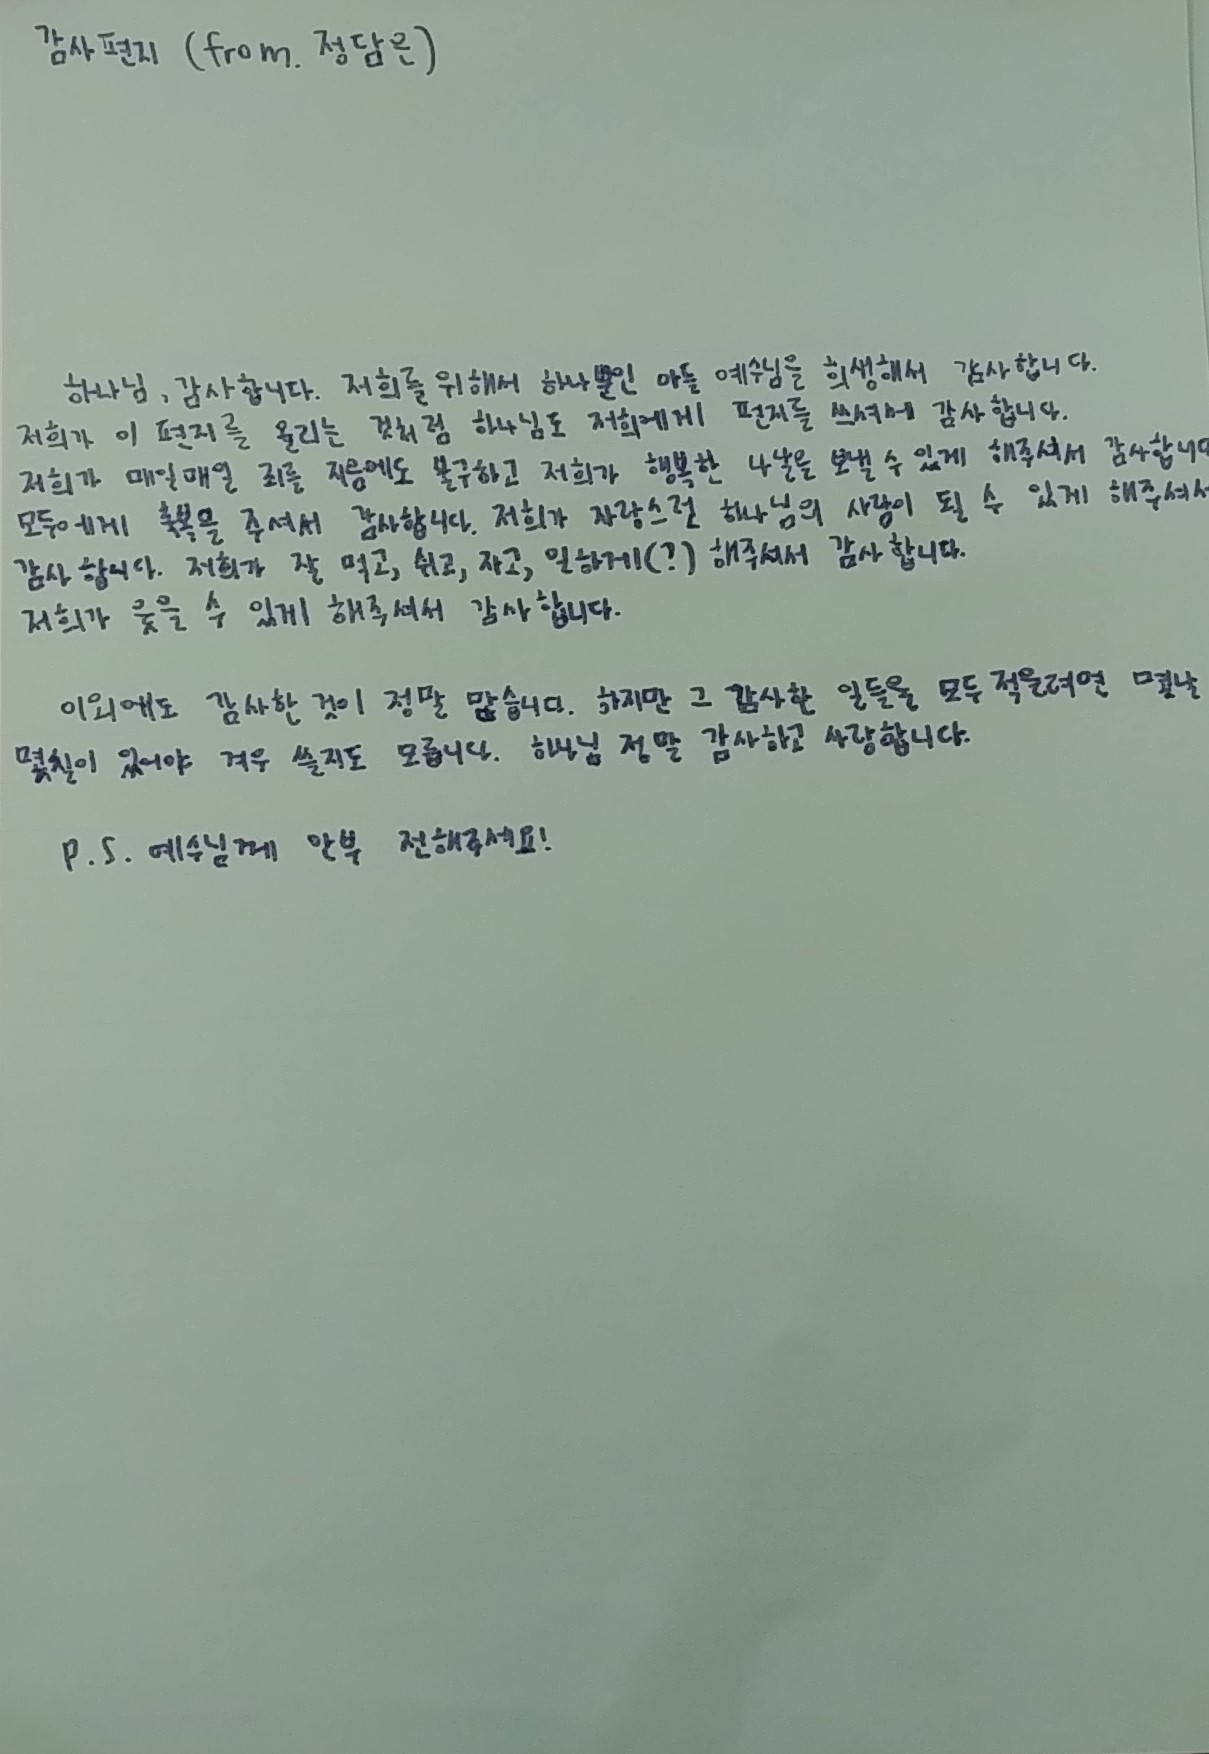 감사편지 (from. 정담은)
하나님, 감사합니다. 저희를 위해서 하나뿐인 아들 예수님을 희생해서 감사합니다.
저희가 이 편지를 올리는 것처럼 하나님도 저희에게 편지를 쓰셔에 감사합니다.
저희가 매일매일 죄를 지음에도 불구하고 저희가 행복한 나날을 보낼 수 있게 해주셔서 감사합니다
모두에게 축복을 주셔서 감사합니다. 저희가 자랑스런 하나님의 사랑이 될 수 있게 해주셔서
감사합니다. 저희가 잘 먹고, 쉬고, 자고, 일하게(?) 해주셔서 감사합니다.
저희가 웃을 수 있게 해주셔서 감사합니다.
이외에도 감사한 것이 정말 많습니다. 하지만 그 감사한 일들을 모두 적을려면 몇날
몇칠이 있어야 겨우 쓸지도 모릅니다. 하나님 정말 감사하고 사랑합니다.
P.S. 예수님께 안부 전해주세요!